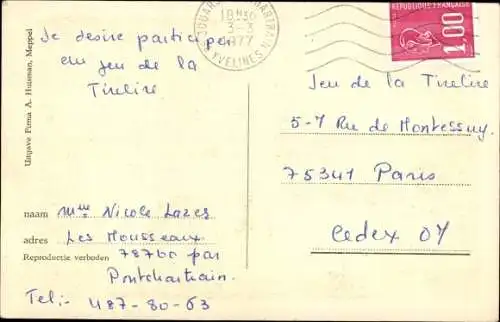 Je desire participer
au jeu de la
Tirelire
Uitgave Firma A. Huisman, Meppel
naam Mme Nicole Lazes
adres Les Mousseaux
Reproductie verboden 78760 par
Pontchartrain.
Tel:- 487-80-63
18H30
3-3
1977
YVELINES
REPUBLIQUE FRANÇAISE
1,00
Jeu de la Tirelire
5-7 Rue de Montessuy.
75341 Paris
Cedex 07